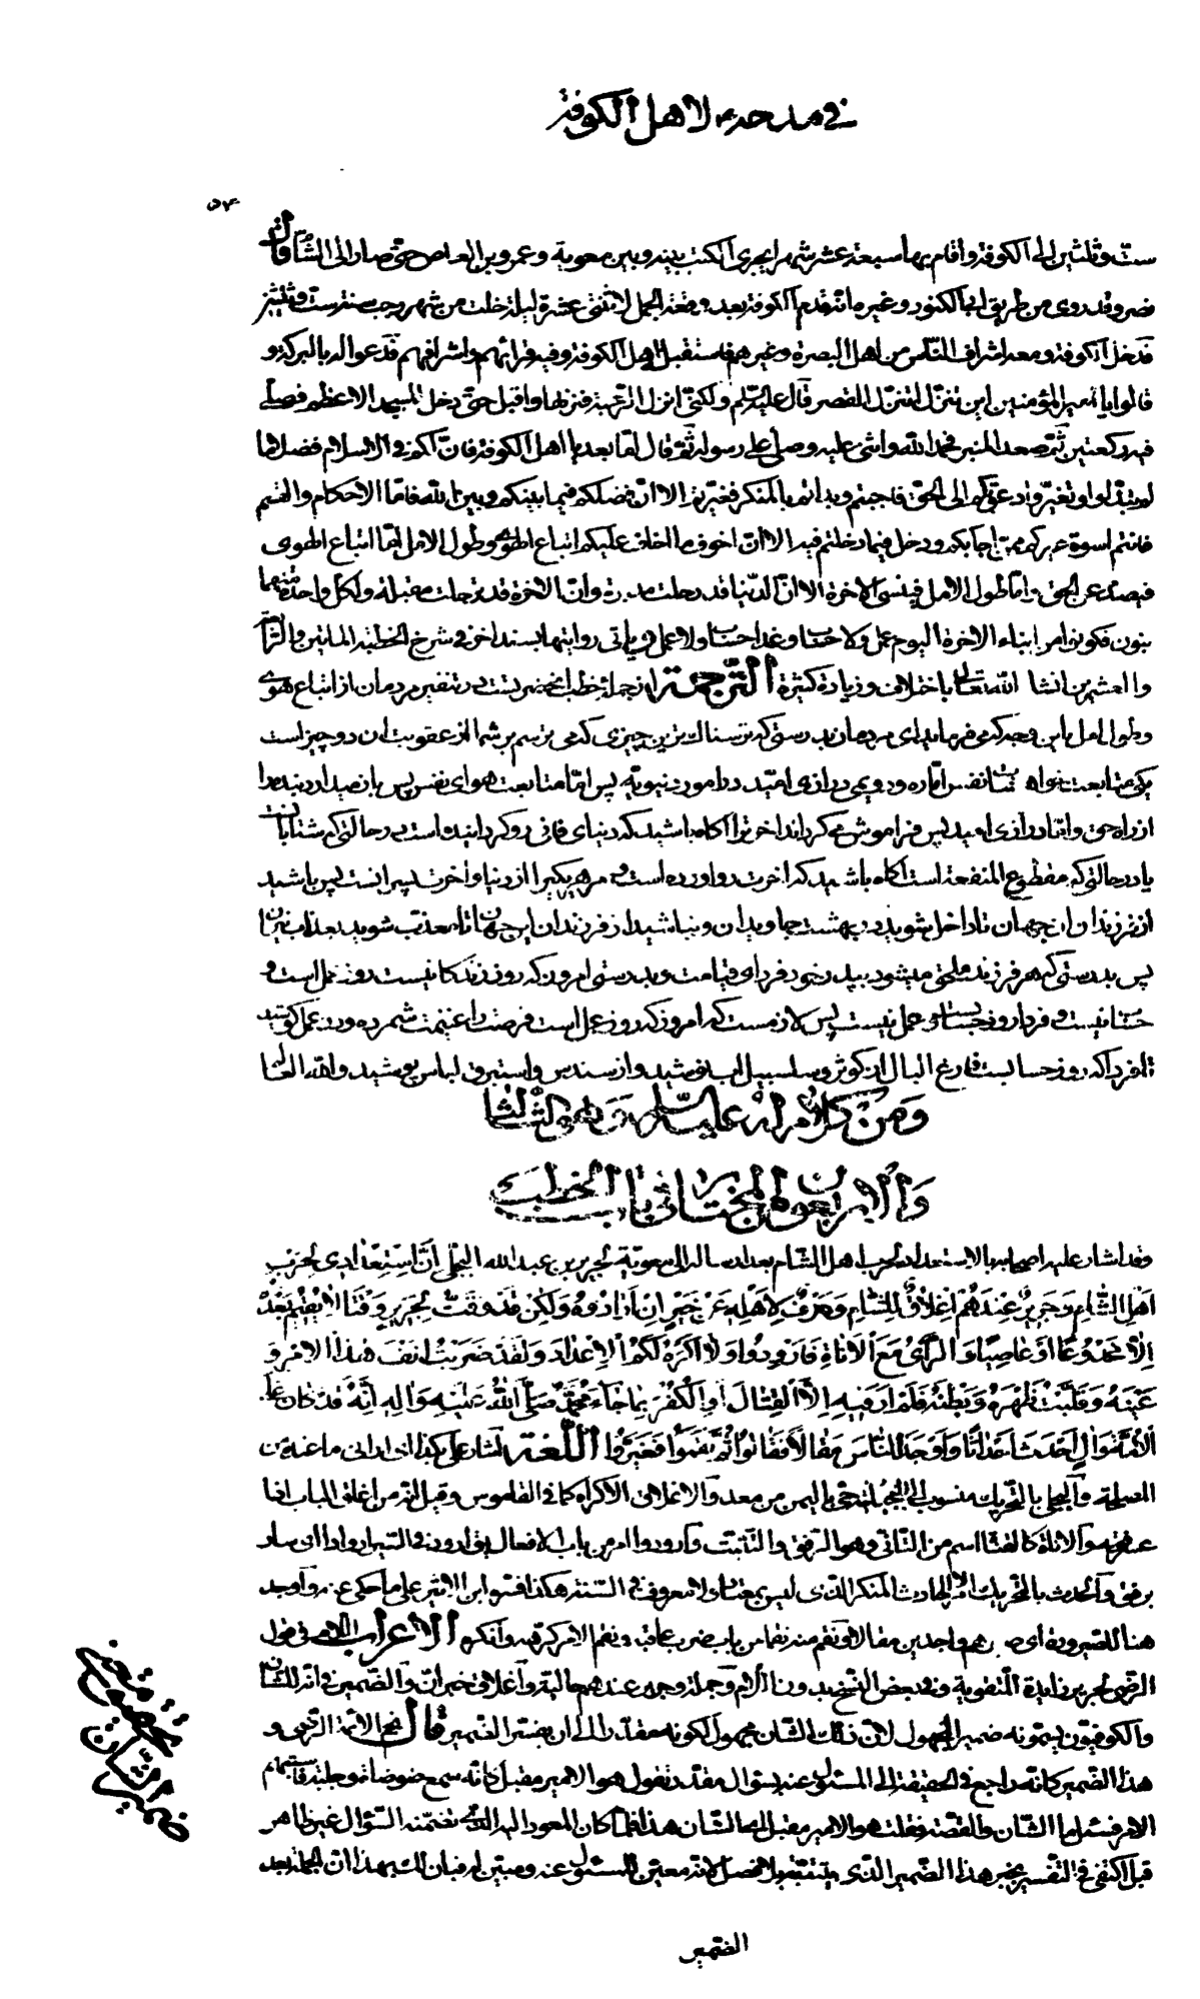 في مدحه لاهل الكوفة
۵۴
ست وثلثين الى الكوفة واقام بها سبعة عشر شهرا يجرى الكتب بينه وبين معوية وعمرو بن العاص حتى صار الى الشام
نصر وقد روى من طريق ابى الكنود وغيره انه قدم الكوفة بعد وقعة الجمل لاثنتى عشرة ليلة خلت من شهر رجب سنة ست وثلثين
فدخل الكوفة ومعه اشراف الناس من اهل البصرة وغيرهم فاستقبل اهل الكوفة وفيهم قراؤهم واشرافهم فدعوا له بالبركة و
قالوا يا امير المؤمنين اين تنزل اتنزل القصر قال عليه السلم ولكنى انزل الرحبة فنزلها واقبل حتى دخل المسجد الاعظم فصلى
فيه ركعتين ثم صعد المنبر فحمد الله واثنى عليه وصلى على رسوله ثم قال اما بعد يا اهل الكوفة فان لكم في الاسلام فضلا ما
لم تبدلوا وتغيروا دعوتكم الى الحق فاجبتم وبدأتم بالمنكر فغيرتم الا ان فضلكم فيما بينكم وبين الله فاما الاحكام والقسم
فانتم اسوة غيركم ممن اجابكم ودخل فيما دخلتم فيه الا ان اخوف ما اخاف عليكم اتباع الهوى وطول الامل اما اتباع الهوى
فيصد عن الحق واما طول الامل فينسى الاخرة الا ان الدنيا قد رحلت مدبرة وان الاخرة قد ترحلت مقبلة ولكل واحدة منهما
بنون فكونوا من ابناء الاخرة اليوم عمل ولا حساب وغدا حساب ولا عمل ويأتى روايتها بسند اخر في شرح الخطبة المأتين والرابعة
والعشرين انشا الله تعالى باختلاف وزيادة كثيرة الترجمة از جملة خطب انحضرتست در تنفير مردمان از اتباع هوى
وطول امل باين وجه كه مى فرمايد اى مردمان بدرستى كه ترسناك ترين چيزى كه مى ترسم بر شما از عقوبت ان دو چيز است
يكى متابعت خواهشات نفس اماره ودويمى درازى اميد در امور دنيويه پس اما متابعت هواى نفس پس باز ميدارد بنده را
از راه حق واما درازى اميد پس فراموش مى گرداند اخرت را اگاه باشيد كه دنياى فانى رو گردانيده است در حالتى كه شتابانست
يا در حالتى كه مقطوع المنفعة است اگاه باشيد كه اخرت رو اورده است و مر هر يكى را از دنيا واخرت پسرانست پس باشيد
از فرزندان ان جهان تا داخل شويد در بهشت جاويدان ونباشيد از فرزندان اين جهان تا معذب شويد بعذاب نيران
پس بدرستى كه هر فرزند ملحق ميشود بپدر خود فرداى قيامت وبدرستى امروز كه روز زندگانيست روز عمل است و
حساب نيست وفردا روز حسابست وعمل نيست پس لازمست كه امروز كه روز عمل است فرصت را غنيمت شمرده ودر عمل كوشيد
تا فردا كه روز حسابست فارغ البال از كوثر وسلسبيل اب نوشيد واز سندس واستبرق لباس پوشيد والله العالم
ومن كلام له عليه السلم وهو الثالث
والاربعون من المختار في باب الخطب
وقد اشار عليه اصحابه بالاستعداد لحرب اهل الشام بعد ارساله الى معوية لجرير بن عبد الله البجلى ان استعدادى لحرب
اهل الشام وجرير عندهم اغلاق للشام وصرف لاهله عن خير ان ارادوه ولكن قد وقت لجرير وقتا لا يقيم بعده
الا مخدوعا او عاصيا والراى مع الاناة فارودوا ولا اكره لكم الاعداد ولقد ضربت انف هذا الامر و
عينه وقلبت ظهره وبطنه فلم ار فيه الا القتال او الكفر بما جاء محمد صلى الله عليه واله انه قد كان على
الامة وال احدث احداثا واوجد الناس مقالا فقالوا ثم نقموا فغيروا اللغة اشار على بكذا اى ارانى ما عنده من
المصلحة والبجلى بالتحريك منسوب الى بجيلة حى باليمن من معد والاغلاق الاكراه كما في القاموس وقيل انه من اغلق الباب اذا
عسر فتحه والاناة كالقناة اسم من التأنى وهو الرفق والتثبت وارودوا امر من باب الافعال يقال ارود في السير اروادا اى سار
برفق والحدث بالتحريك الامر الحادث المنكر الذى ليس بمعتاد ولا معروف في السنة هكذا فسره ابن الاثير على ما حكى عنه واوجد
هنا للصيرورة اى صيرهم واجدين مقالا ونقم منه نقما من باب ضرب عاقب ونقم الامر كرهه وانكره الاعراب اللام في قول
الرضى لجرير زايدة للتقوية وفي بعض النسخ بدون اللام وجملة وجرير عندهم حالية واغلاق خبر ان والضمير في انه للشان
والكوفيون يسمونه ضمير المجهول لان ذلك الشان مجهول لكونه مقدرا الى ان يفسر الضمير قال نجم الائمة الرضى و
هذا الضمير كانه راجع في الحقيقة الى المسئول عنه بسؤال مقدر تقول هو الامير مقبل كانه سمع ضوضاء وجلبة فاستبهم
الامر فسئل ما الشان والقصة فقلت هو الامير مقبل اى الشان هذا فلما كان المعود اليه الذى تضمنه السؤال غير ظاهر
قبل اكتفى في التفسير بخبر هذا الضمير الذى يتعقبه بلا فصل لانه معين للمسئول عنه ومبين له فبان لك بهذا ان الجملة بعد
الضمير